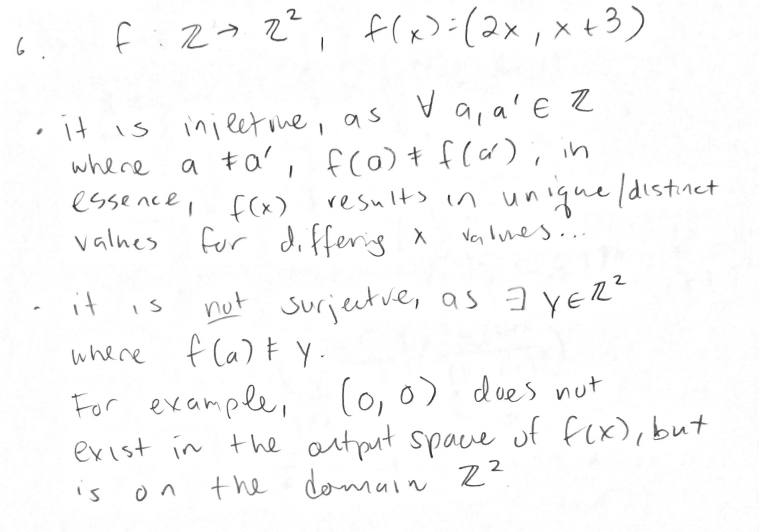 6. f : ℤ → ℤ², f(x) = (2x, x+3)
• it is injective, as ∀ a, a' ∈ ℤ
where a ≠ a', f(a) ≠ f(a'), in
essence, f(x) results in unique/distinct
values for differing x values...
- it is not surjective, as ∃ y ∈ ℤ²
where f(a) ≠ y.
For example, (0, 0) does not
exist in the output space of f(x), but
is on the domain ℤ²